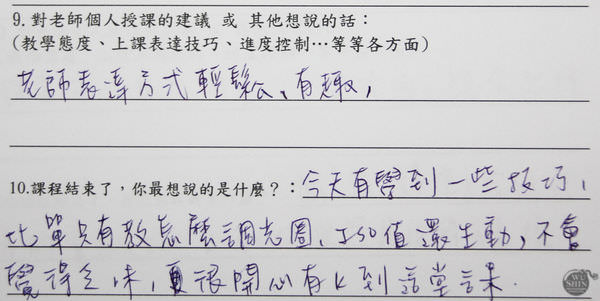 9. 對老師個人授課的建議 或 其他想說的話：
(教學態度、上課表達技巧、進度控制…等等各方面)
老師表達方式輕鬆、有趣，
10.課程結束了，你最想說的是什麼？：今天有學到一些技巧，
比單只有教怎麼調光圈、ISO值還生動，不會
覺得乏味，更很開心有上到這堂課.
WU SHIN